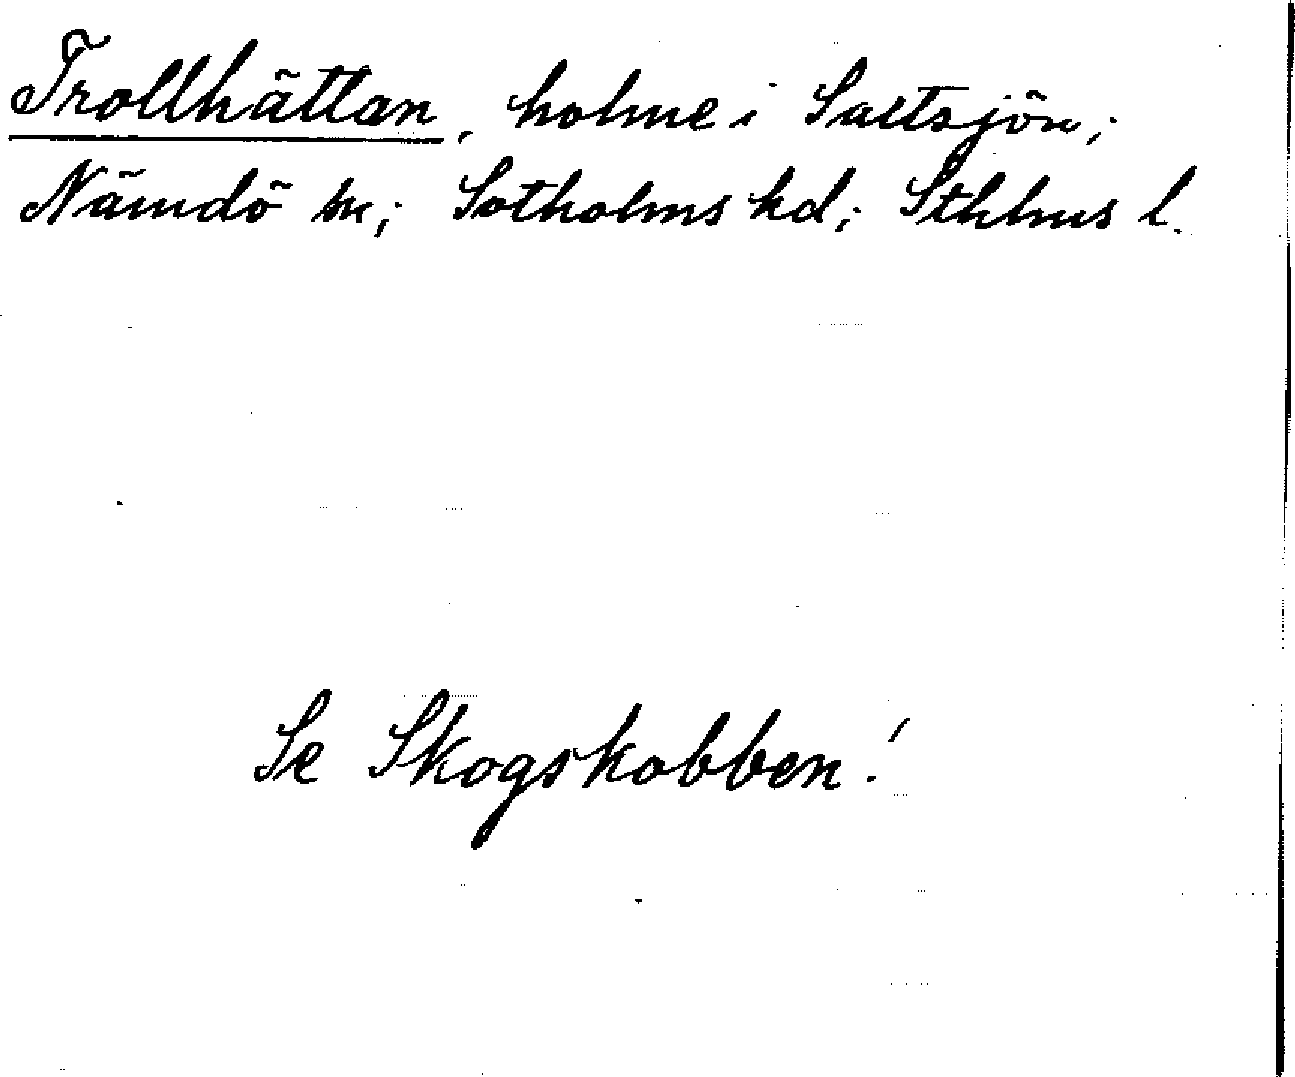 Trollhättan, holme i Saltsjön;
Nämdö sn; Sotholms hd; Sthlms l.
Se Skogskobben!